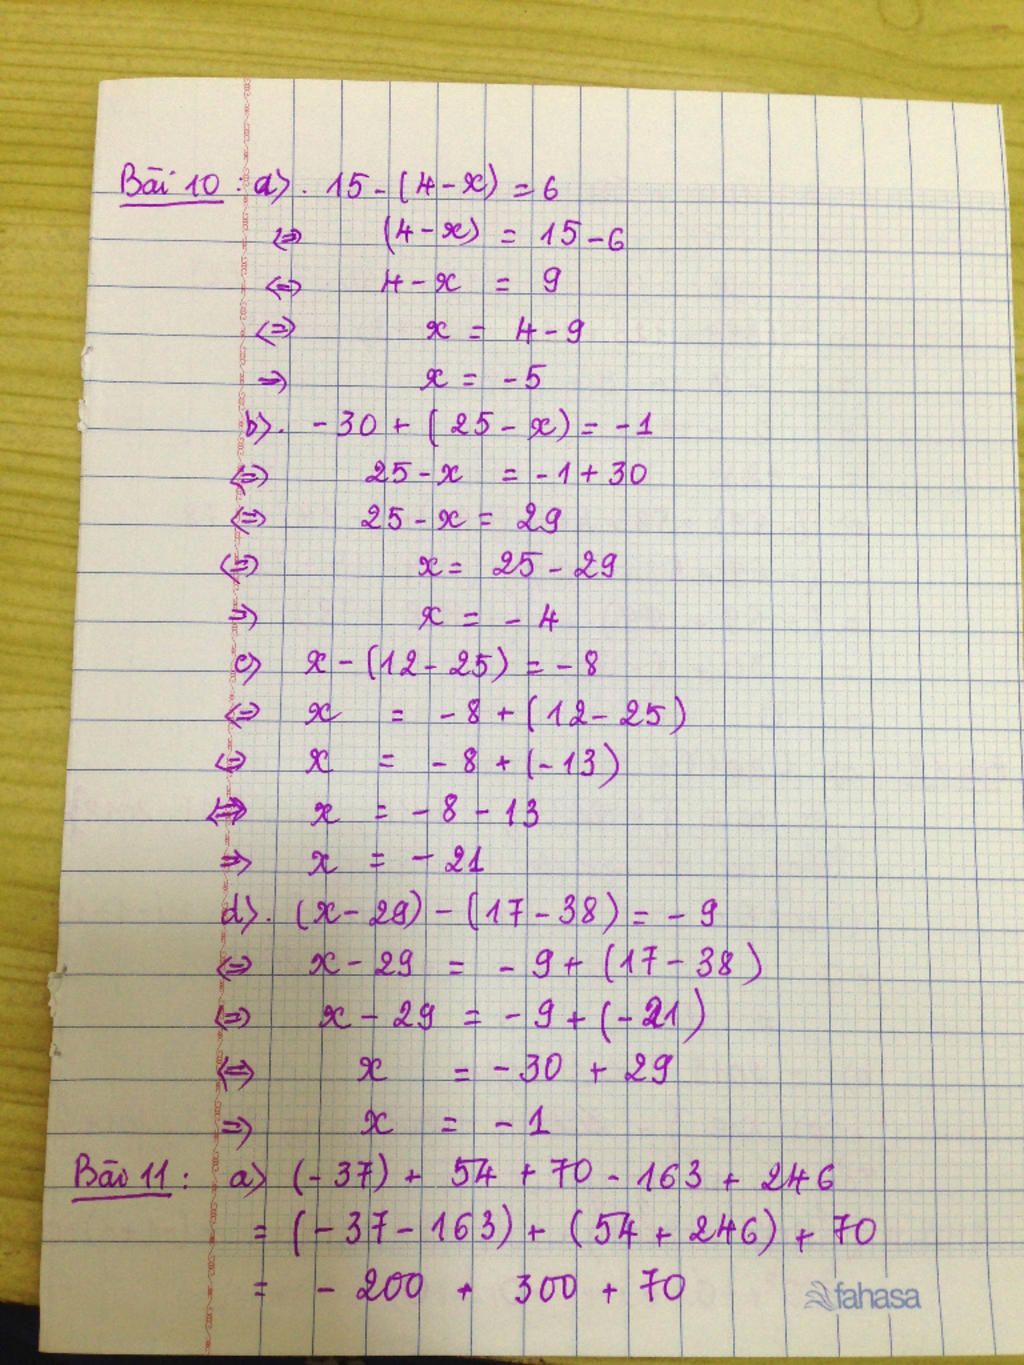 Bài 10 : a). 15 - (4 - x) = 6
⇔ (4 - x) = 15 - 6
⇔ 4 - x = 9
⇔ x = 4 - 9
⇒ x = - 5
b). - 30 + ( 25 - x) = - 1
⇔ 25 - x = - 1 + 30
⇔ 25 - x = 29
⇔ x = 25 - 29
⇒ x = - 4
c) x - (12 - 25) = - 8
⇔ x = - 8 + (12 - 25)
⇔ x = - 8 + (- 13)
⇔ x = - 8 - 13
⇒ x = - 21
d). (x - 29) - (17 - 38) = - 9
⇔ x - 29 = - 9 + (17 - 38)
⇔ x - 29 = - 9 + (- 21)
⇔ x = - 30 + 29
⇒ x = - 1
Bài 11 : a) (- 37) + 54 + 70 - 163 + 246
= (- 37 - 163) + (54 + 246) + 70
= - 200 + 300 + 70
fahasa